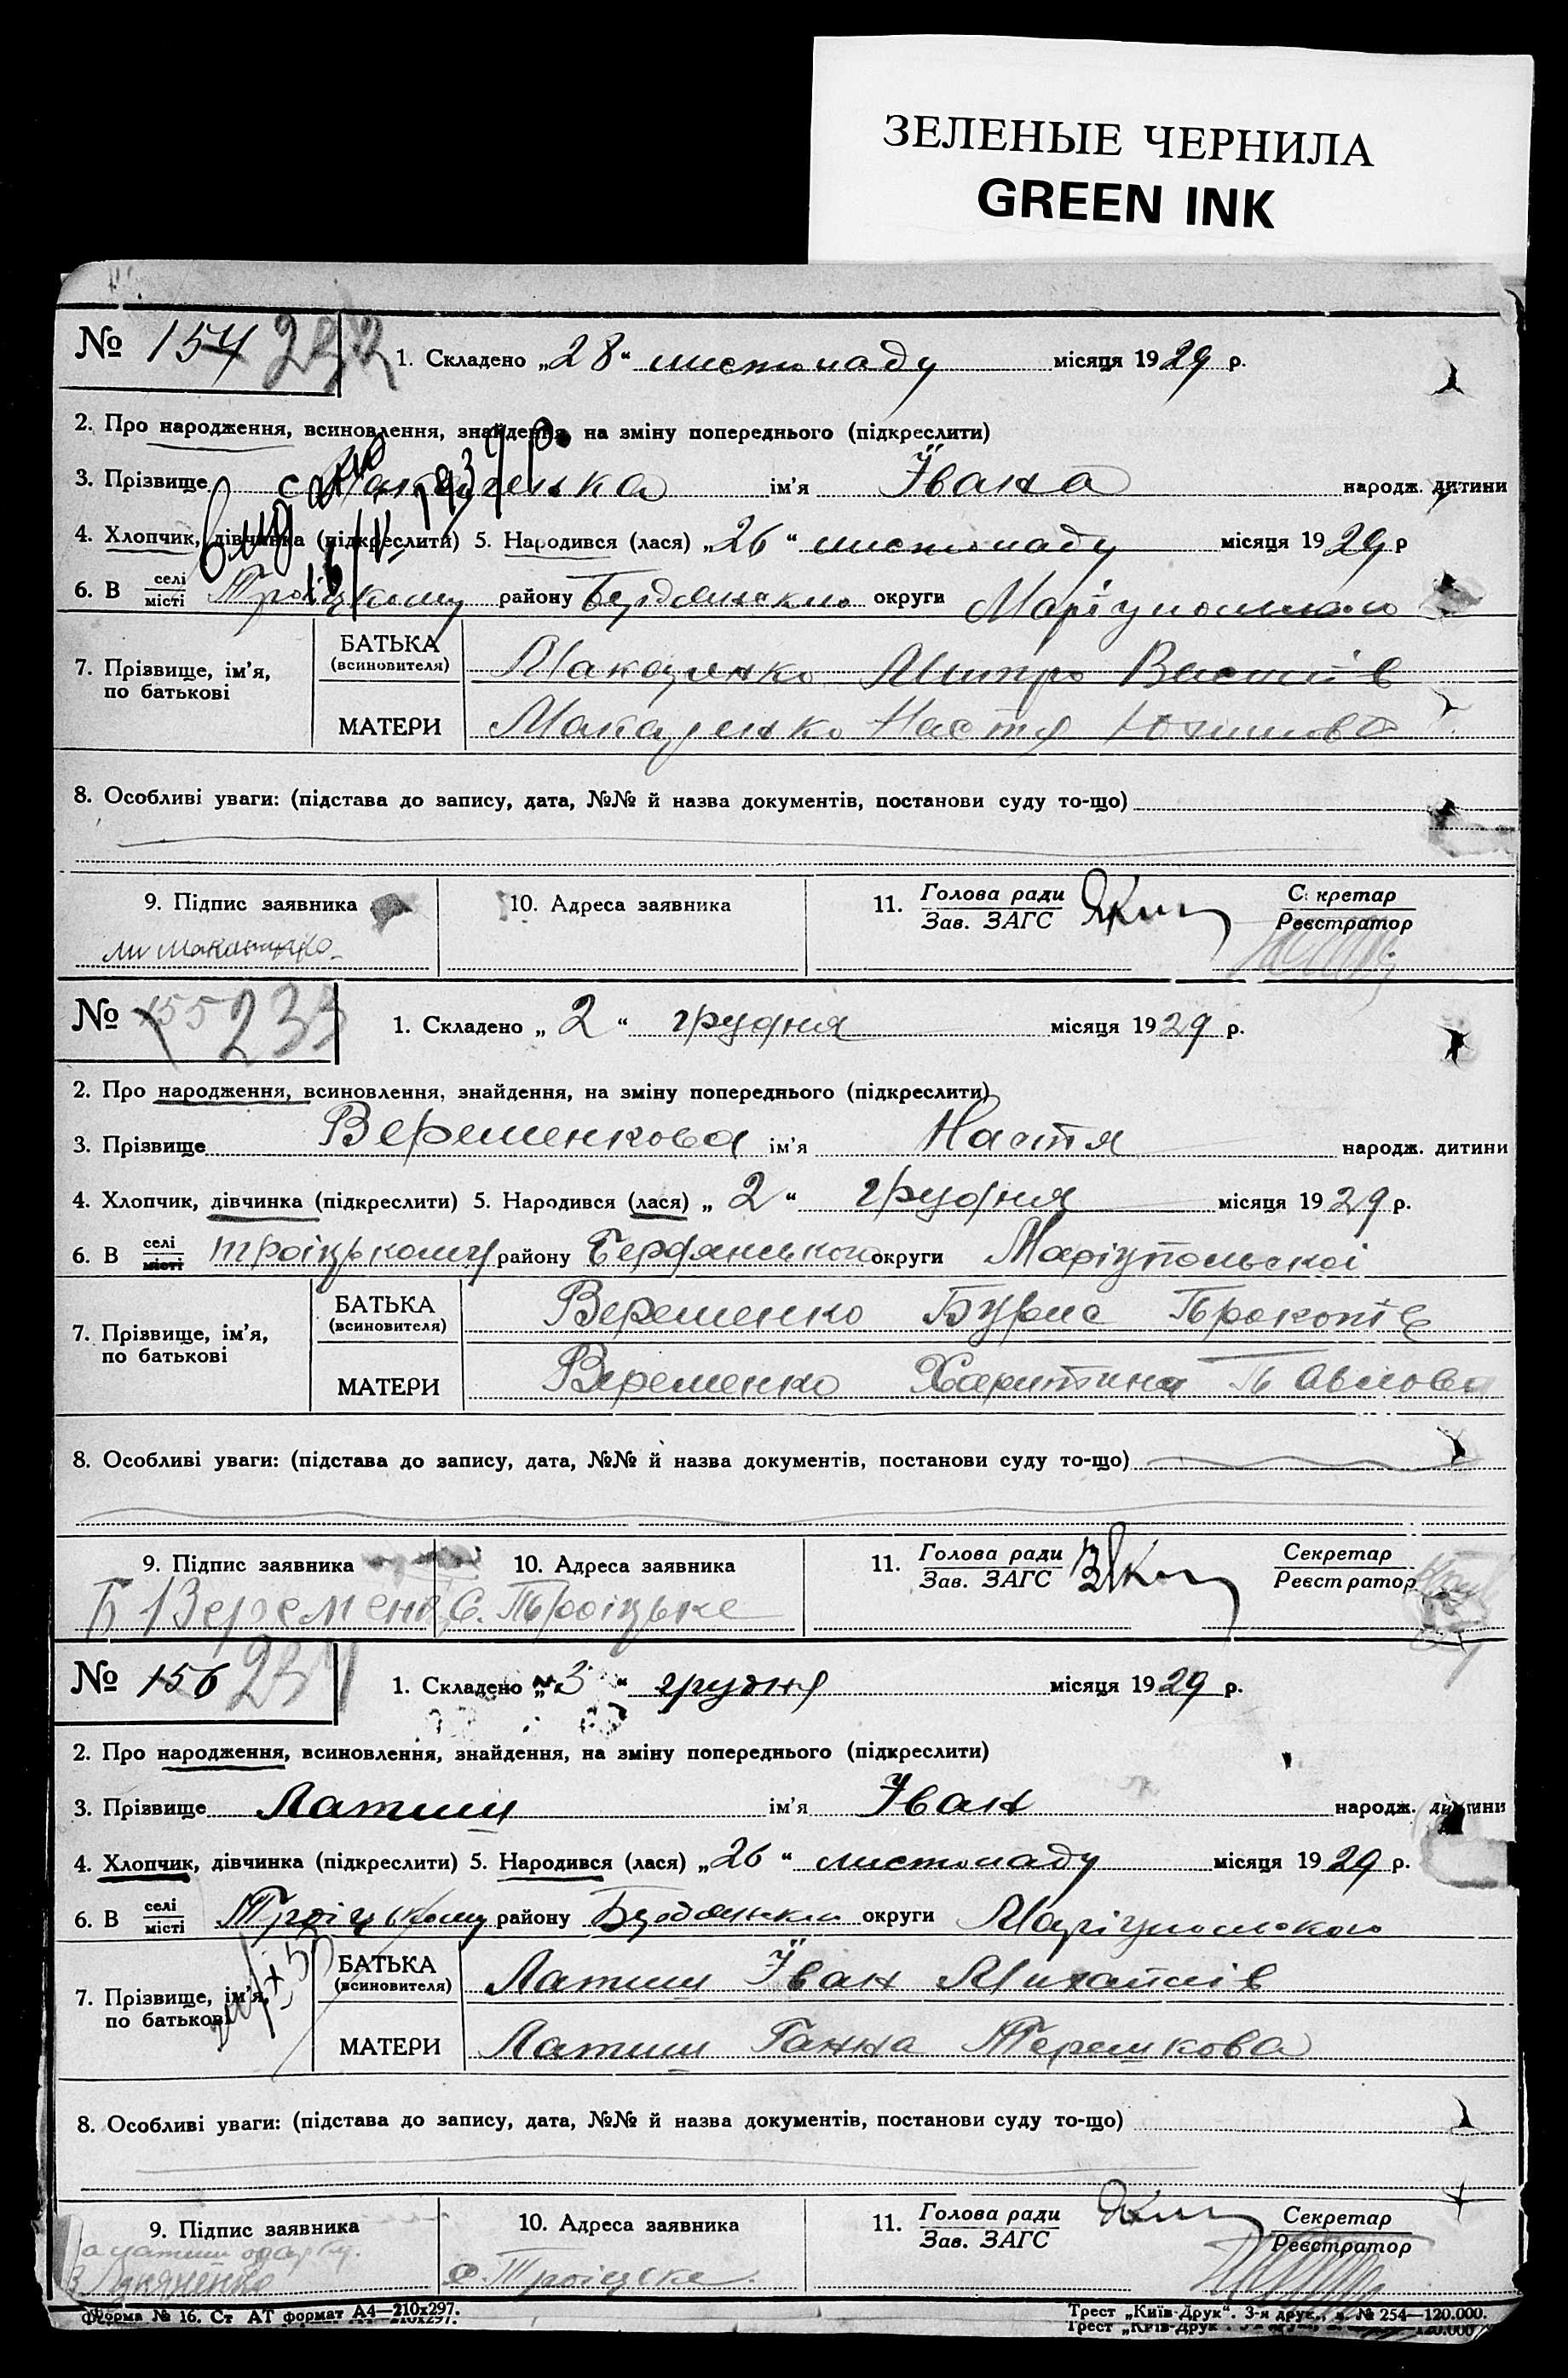 ЗЕЛЕНЫЕ ЧЕРНИЛА
GREEN INK
№ 154 232 1. Складено „28“ листопаду місяця 1929 р.
2. Про народження, всиновлення, знайдення, на зміну попереднього (підкреслити)
3. Прізвище ім'я Івана народж. дитини
4. Хлопчик, дівчинка (підкреслити) 5. Народився (лася) „26“ листопаду місяця 1929 р
6. В селі місті Троіцькому району Бердянсько округи
7. Прізвище, ім'я, по батькові
БАТЬКА (всиновителя) Макаренко Митро Василів
МАТЕРИ Макаренко Настя
8. Особливі уваги: (підстава до запису, дата, №№ й назва документів, постанови суду то-що)
9. Підпис заявника 10. Адреса заявника 11. Голова ради Зав. ЗАГС Секретар Реєстратор
№ 155 233 1. Складено „2“ грудня місяця 1929 р.
2. Про народження, всиновлення, знайдення, на зміну попереднього (підкреслити)
3. Прізвище Веременкова ім'я Настя народж. дитини
4. Хлопчик, дівчинка (підкреслити) 5. Народився (лася) „2“ грудня місяця 1929 р.
6. В селі місті троіцькому району Бердянського округи Маріупольскоі
7. Прізвище, ім'я, по батькові
БАТЬКА (всиновителя) Веременко Бурис Прокопів
МАТЕРИ Веременко Харитина Павлова
8. Особливі уваги: (підстава до запису, дата, №№ й назва документів, постанови суду то-що)
9. Підпис заявника 10. Адреса заявника 11. Голова ради Зав. ЗАГС Секретар Реєстратор
Б Веременк с. Троіцьке
№ 156 234 1. Складено „3“ грудня місяця 1929 р.
2. Про народження, всиновлення, знайдення, на зміну попереднього (підкреслити)
3. Прізвище Латиш ім'я Іван народж. дитини
4. Хлопчик, дівчинка (підкреслити) 5. Народився (лася) „26“ листопаду місяця 1929 р.
6. В селі місті Троіцькому району округи
7. Прізвище, ім'я, по батькові
БАТЬКА (всиновителя) Латиш Іван Михайлів
МАТЕРИ Латиш Ганна Терешкова
8. Особливі уваги: (підстава до запису, дата, №№ й назва документів, постанови суду то-що)
9. Підпис заявника 10. Адреса заявника 11. Голова ради Зав. ЗАГС Секретар Реєстратор
с. Троіцьке
Форма № 16. Ст АТ формат А4—210x297. Трест „Київ-Друк“. 3-я друк., з. № 254—120.000.